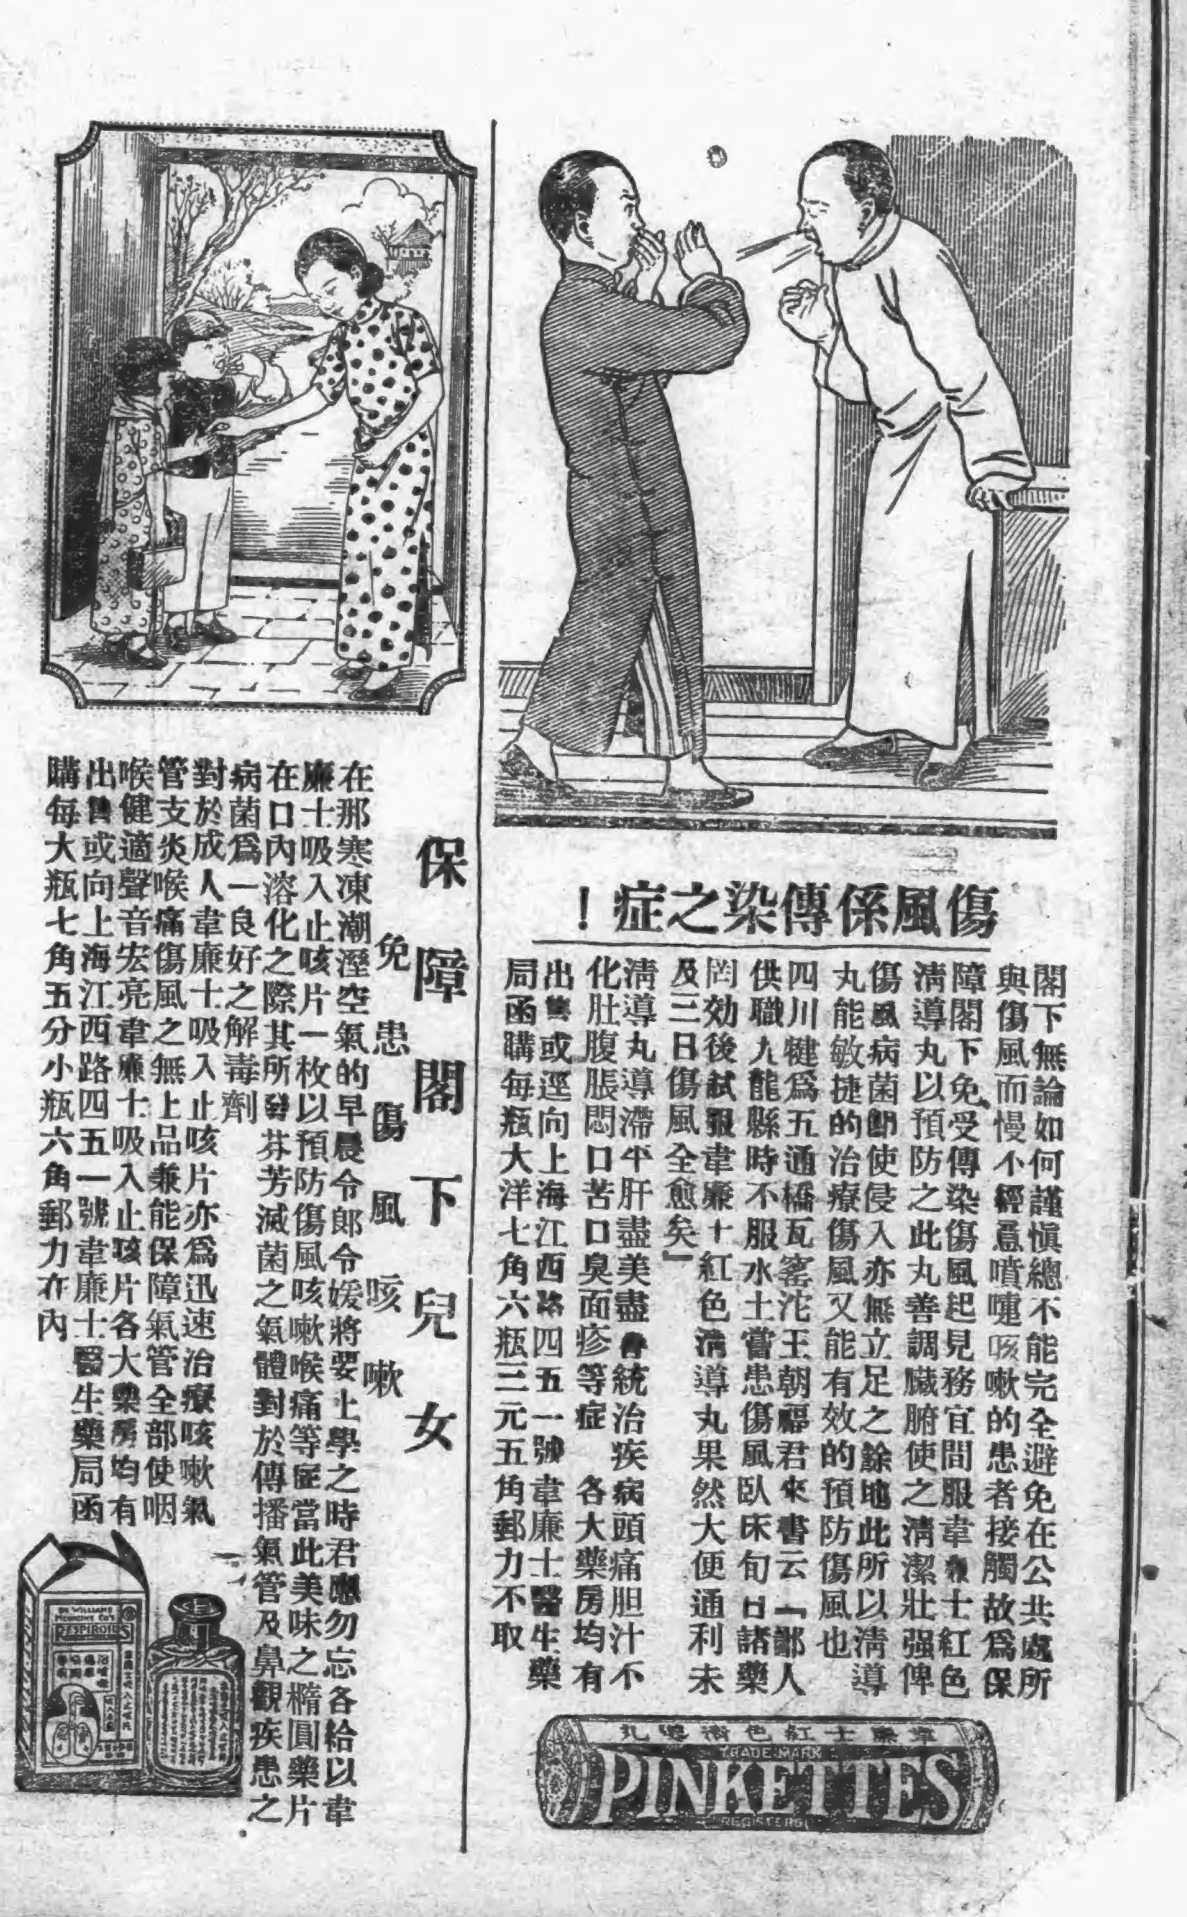 傷風係傳染之症！
閣下無論如何謹愼總不能完全避免在公共處所
與傷風而慢不經意噴嚏咳嗽的患者接觸故爲保
障閣下免受傳染傷風起見務宜間服韋廉士紅色
淸導丸以預防之此丸善調臟腑使之淸潔壯强俾
傷風病菌卽使侵入亦無立足之餘地此所以淸導
丸能敏捷的治療傷風又能有效的預防傷風也
四川犍爲五通橋瓦窰沱王朝福君來書云「鄙人
供職九龍縣時不服水土嘗患傷風臥床旬日諸藥
罔効後試服韋廉士紅色淸導丸果然大便通利未
及三日傷風全愈矣」
淸導丸導滯平肝盡美盡善統治疾病頭痛胆汁不
化肚腹脹悶口苦口臭面疹等症 各大藥房均有
出售或逕向上海江西路四五一號韋廉士醫生藥
局函購每瓶大洋七角六瓶三元五角郵力不取
韋廉士紅色淸導丸
TRADE MARK
PINKETTES
REGISTERED
保障閣下兒女
免患傷風咳嗽
在那寒凍潮溼空氣的早晨令郎令媛將要上學之時君應勿忘各給以韋
廉士吸入止咳片一枚以預防傷風咳嗽喉痛等症當此美味之橢圓藥片
在口內溶化之際其所發芬芳滅菌之氣體對於傳播氣管及鼻觀疾患之
病菌爲一良好之解毒劑
對於成人韋廉士吸入止咳片亦爲迅速治療咳嗽氣
管支炎喉痛傷風之無上品兼能保障氣管全部使咽
喉健適聲音宏亮韋廉士吸入止咳片各大藥房均有
出售或向上海江西路四五一號韋廉士醫生藥局函
購每大瓶七角五分小瓶六角郵力在內
DR WILLIAMS
MEDICINE CO'S
RESPIROIDS